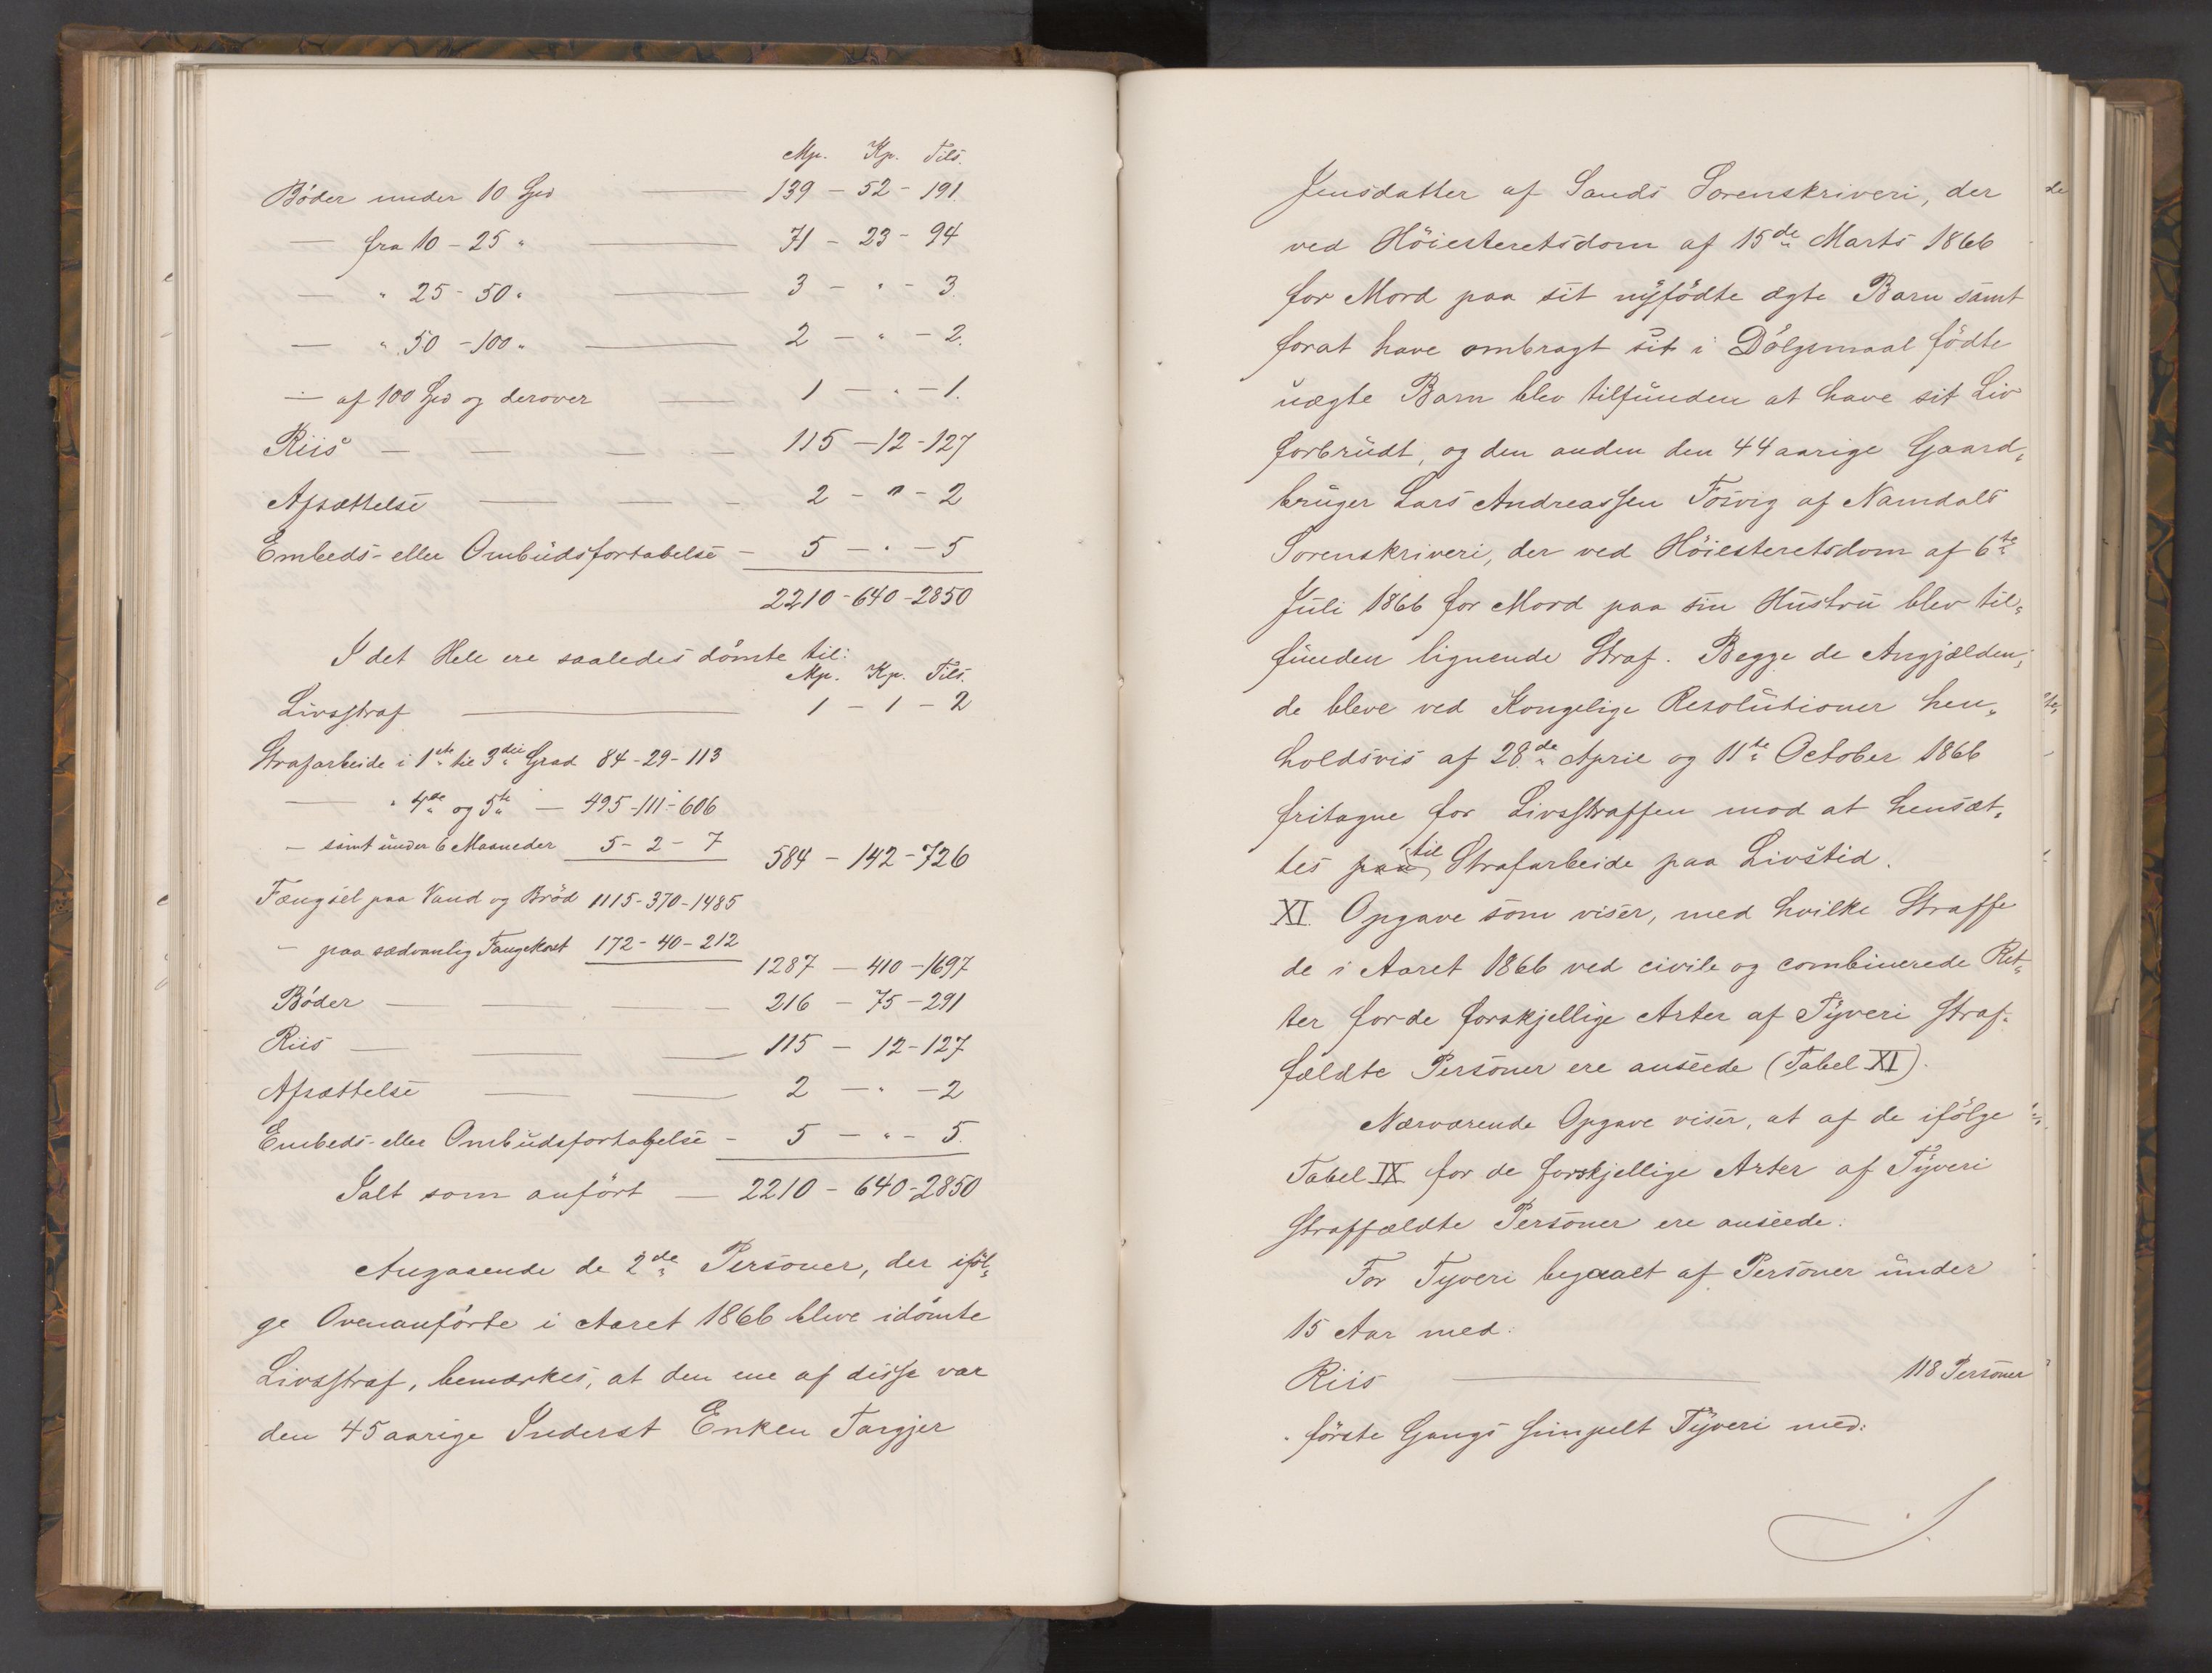 Mp. Kp. Tils.
Bøder under 10 Spd — 139 – 52 – 191.
— fra 10 – 25 " — 71 – 23 – 94
— " 25 – 50 " — 3 – " – 3.
— " 50 – 100 " — 2 – " – 2.
— af 100 Spd og derover — 1 – " – 1.
Riis — — — — 115 – 12 – 127
Afsættelse — — — 2 – " – 2
Embeds- eller Ombudsfortabelse – 5 – " – 5
2210 – 640 – 2850
I det Hele ere saaledes dömte til:
Mp. Kp. Tils.
Livsstraf — 1 – 1 – 2
Strafarbeide i 1ste til 3die Grad 84 – 29 – 113
— " 4de og 5te — 495 – 111 – 606
— samt under 6 Maaneder 5 – 2 – 7 584 – 142 – 726
Fængsel paa Vand og Bröd 1115 – 370 – 1485
– paa sædvanlig Fangekost 172 – 40 – 212
1287 – 410 – 1697
Bøder — — — — 216 – 75 – 291
Riis — — — 115 – 12 – 127
Afsættelse — — 2 – " – 2
Embeds- eller Ombudsfortabelse – 5 – " – 5.
Ialt som anfört — 2210 – 640 – 2850
Angaaende de 2de Personer, der iföl„
ge Ovenanförte i Aaret 1866 bleve idömte
Livsstraf, bemærkes, at den ene af disse var
den 45 aarige Inderst Enken Targjer
Jensdatter af Sands Sorenskriveri, der
ved Höiesteretsdom af 15de Marts 1866
for Mord paa sit nyfödte ægte Barn samt
forat have ombragt sit i Dölgsmaal födte
uægte Barn blev tilfunden at have sit Liv
forbrudt, og den anden den 44 aarige Gaard„
bruger Lars Andreassen af Namdals
Sorenskriveri, der ved Höiesteretsdom af 6te
Juli 1866 for Mord paa sin Hustru blev til„
funden lignende Straf. Begge de Angjælden„
de bleve ved Kongelige Resolutioner hen„
holdsvis af 28de April og 11te October 1866
fritagne for Livsstraffen mod at hensæt„
tes paa til Strafarbeide paa Livstid.
XI. Opgave som viser, med hvilke Straffe
de i Aaret 1866 ved civile og combinerede Ret„
ter for de forskjellige Arter af Tyveri straf„
fældte Personer ere anseede (Tabel XI).
Nærværende Opgave viser, at af de ifölge
Tabel IX for de forskjellige Arter af Tyveri
straffældte Personer ere anseede:
For Tyveri begaaet af Personer under
15 Aar med:
Riis — 118 Personer
" förste Gangs simpelt Tyveri med: